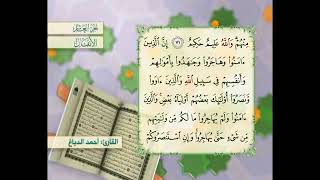 الأنفال
مِنْهُمْ وَاللَّهُ عَلِيمٌ حَكِيمٌ ٧١ إِنَّ الَّذِينَ
ءَامَنُوا وَهَاجَرُوا وَجَٰهَدُوا بِأَمْوَٰلِهِمْ
وَأَنفُسِهِمْ فِي سَبِيلِ اللَّهِ وَالَّذِينَ ءَاوَوا
وَّنَصَرُوا أُولَٰئِكَ بَعْضُهُمْ أَوْلِيَاءُ بَعْضٍ وَالَّذِينَ
ءَامَنُوا وَلَمْ يُهَاجِرُوا مَا لَكُم مِّن وَلَٰيَتِهِم
مِّن شَيْءٍ حَتَّىٰ يُهَاجِرُوا وَإِنِ اسْتَنصَرُوكُمْ
القارئ: أحمد الدباغ